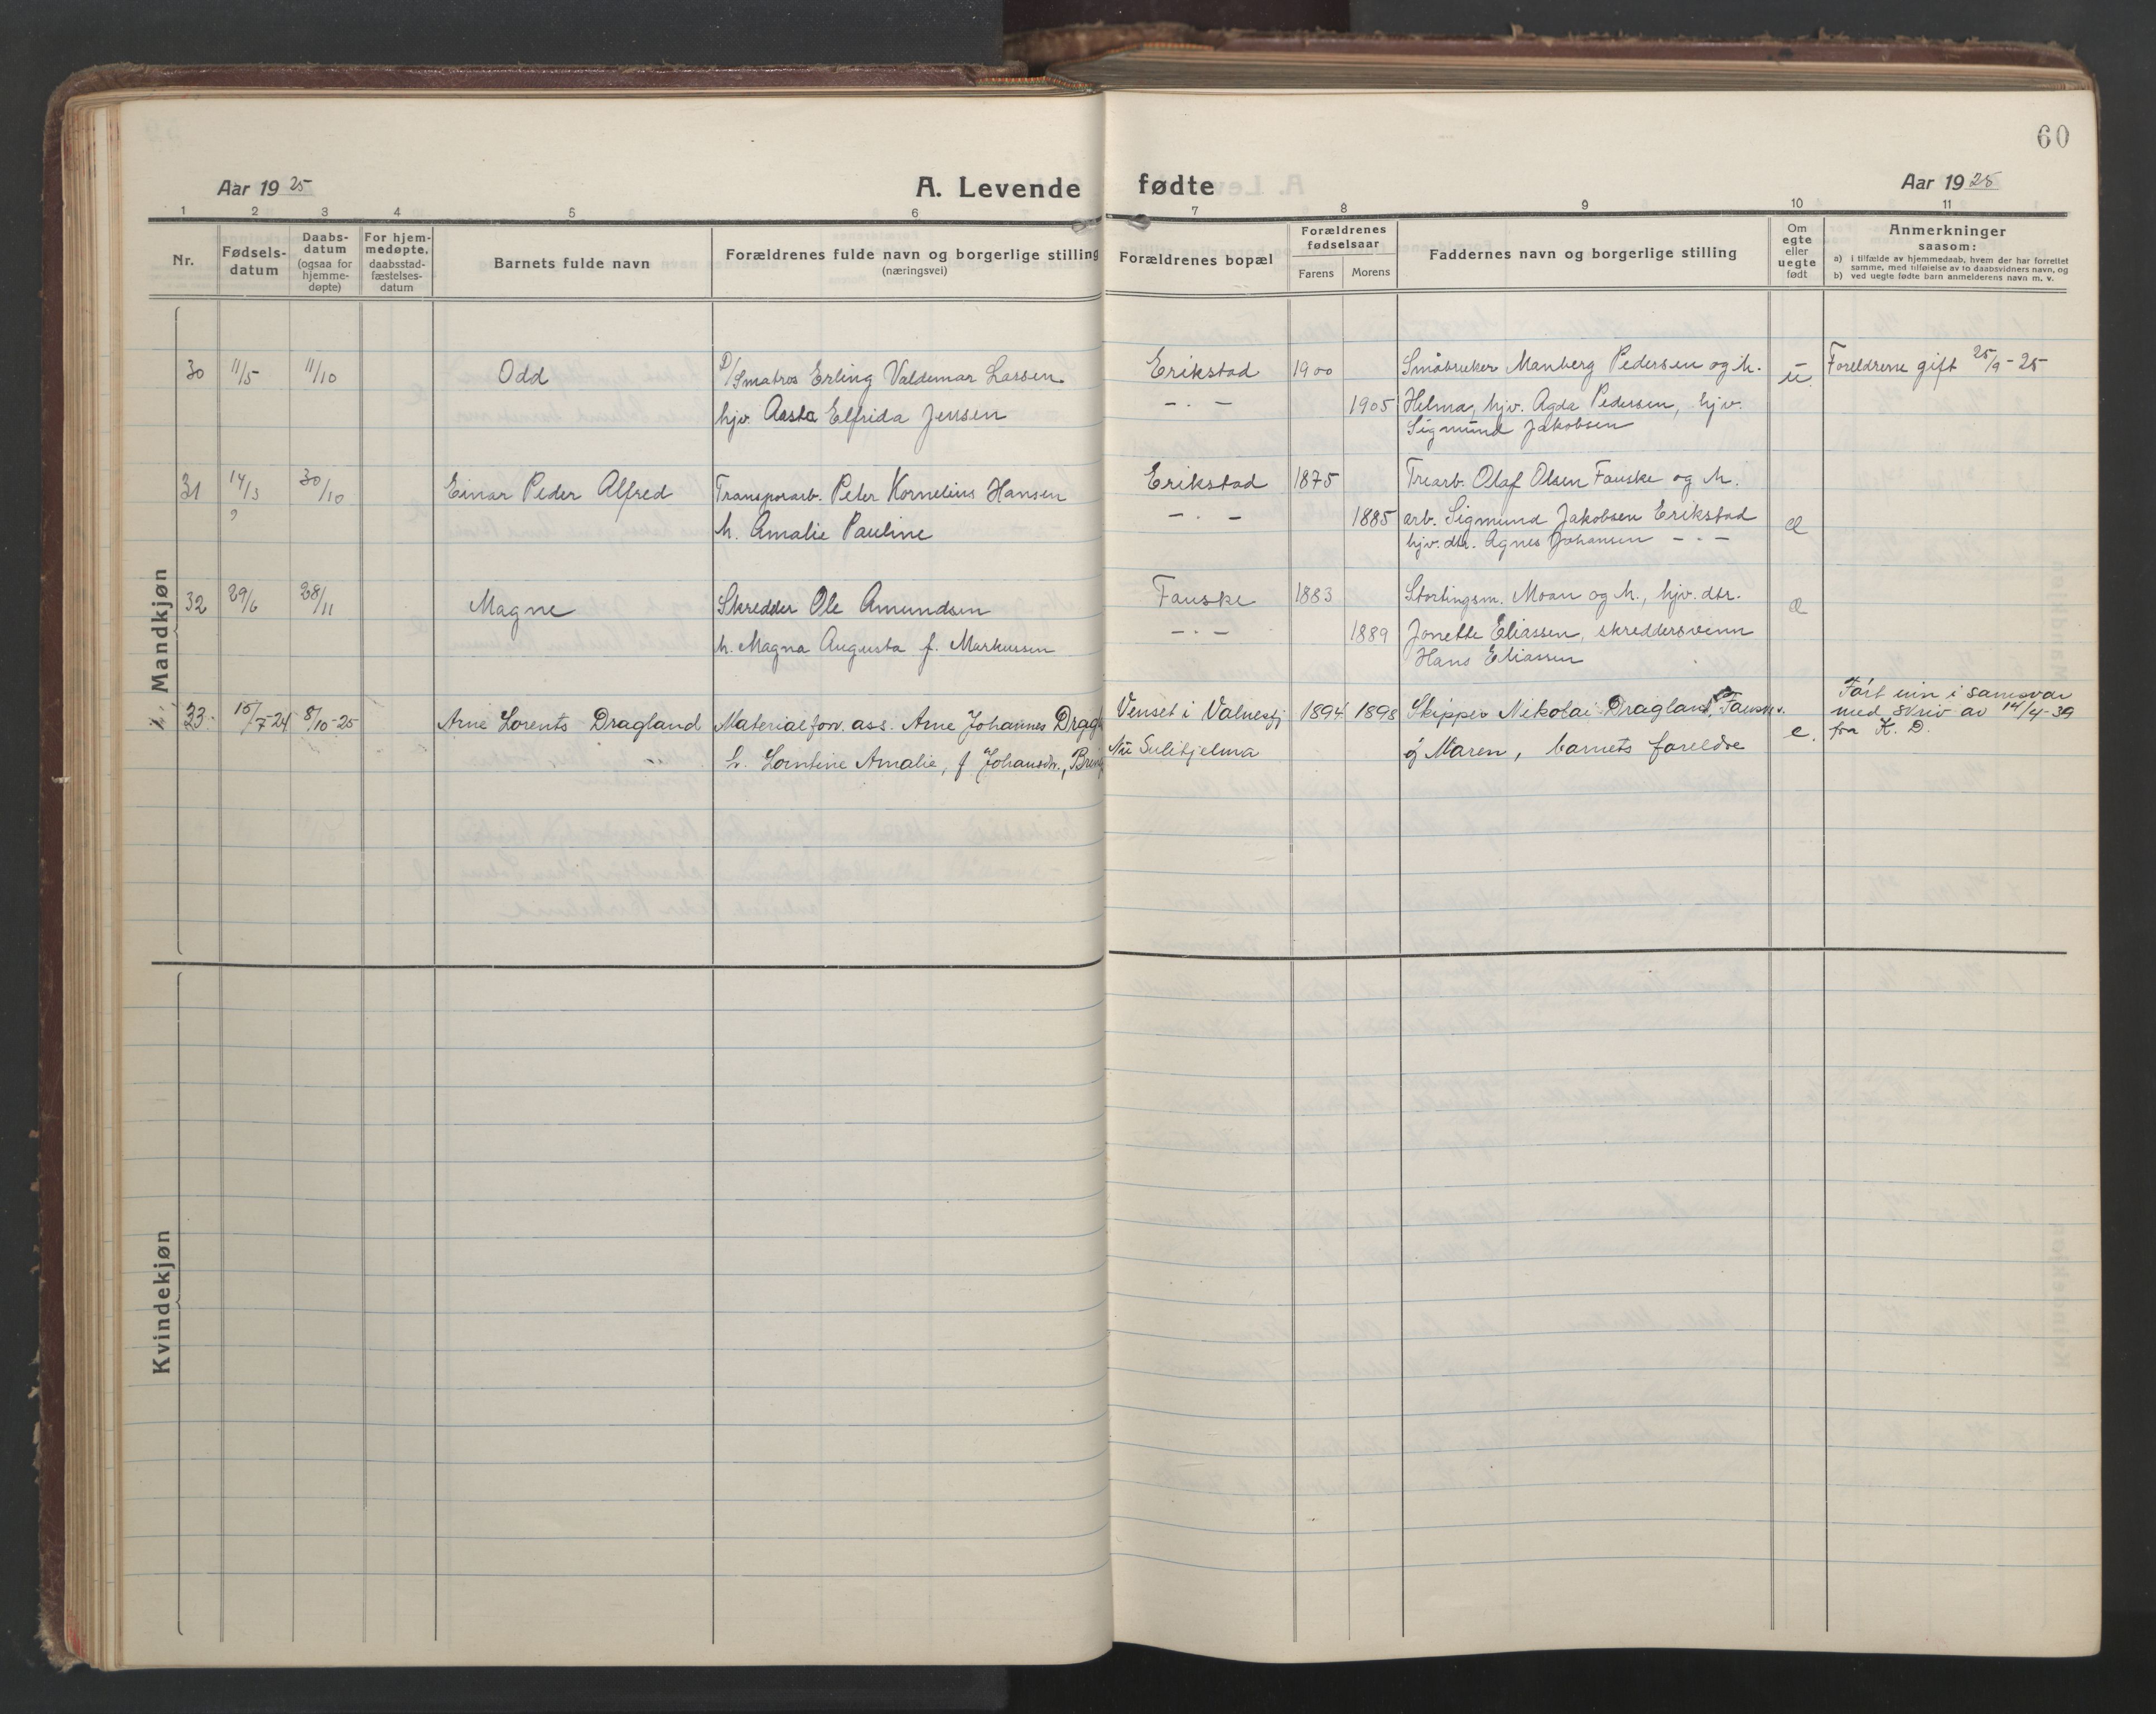 60
Aar 1925
A. Levende fødte
Aar 1925
1 2 3 4 5 6 7 8 9 10 11
Nr.
Fødsels-
datum
Daabs-
datum
(ogsaa for
hjemme-
døpte)
For hjem-
medøpte,
daabsstad-
fæstelses-
datum
Barnets fulde navn
Forældrenes fulde navn og borgerlige stilling
(næringsvei)
Forældrenes bopæl
Forældrenes
fødselsaar
Farens Morens
Faddernes navn og borgerlige stilling
Om
egte
eller
uegte
født
Anmerkninger
saasom:
a) i tilfælde av hjemmedaab, hvem der har forrettet
samme, med tilføielse av to daabsvidners navn, og
b) ved uegte fødte barn anmelderens navn m. v.
Mandkjøn
30 11/5 11/10 Odd D/Smatros Erling Valdemar Lassen Erikstad 1900 Småbruker Manberg Pedersen og h. u. Foreldrene gift 25/9-25
hjv. Aasta Elfrida Jensen — . — 1905 Helma, hjv. Agda Pedersen, hjv.
Sigmund Jakobsen
31 14/3 30/10 Einar Peder Alfred Transporarb. Peter Kornelius Hansen Erikstad 1875 Trearb. Olaf Olsen Fauske og h.
? h. Amalie Pauline — . — 1885 arb. Sigmund Jakobsen Erikstad e
hjv. dtr. Agnes Johansen — . —
32 29/6 28/11 Magne Skredder Ole Amundsen Fauske 1883 Stortingsm. Moan og h., hjv. dtr. e
h. Magna Augusta f. Markussen — . — 1889 Jonette Eliassen, skreddersvenn
Hans Eliassen
33. 15/7-24 8/10-25 Arne Lorents Dragland Materialforv. ass. Arne Johannes Venset i Valnesfj 1894 1898 Skipper Nikolai Dragland, e. Ført inn i samsvar
med skriv av 14/4-39
fra K. D.
h. Amalie, f Johansdr., Nu Sulitjelma Maren, barnets foreldre
Kvindekjøn